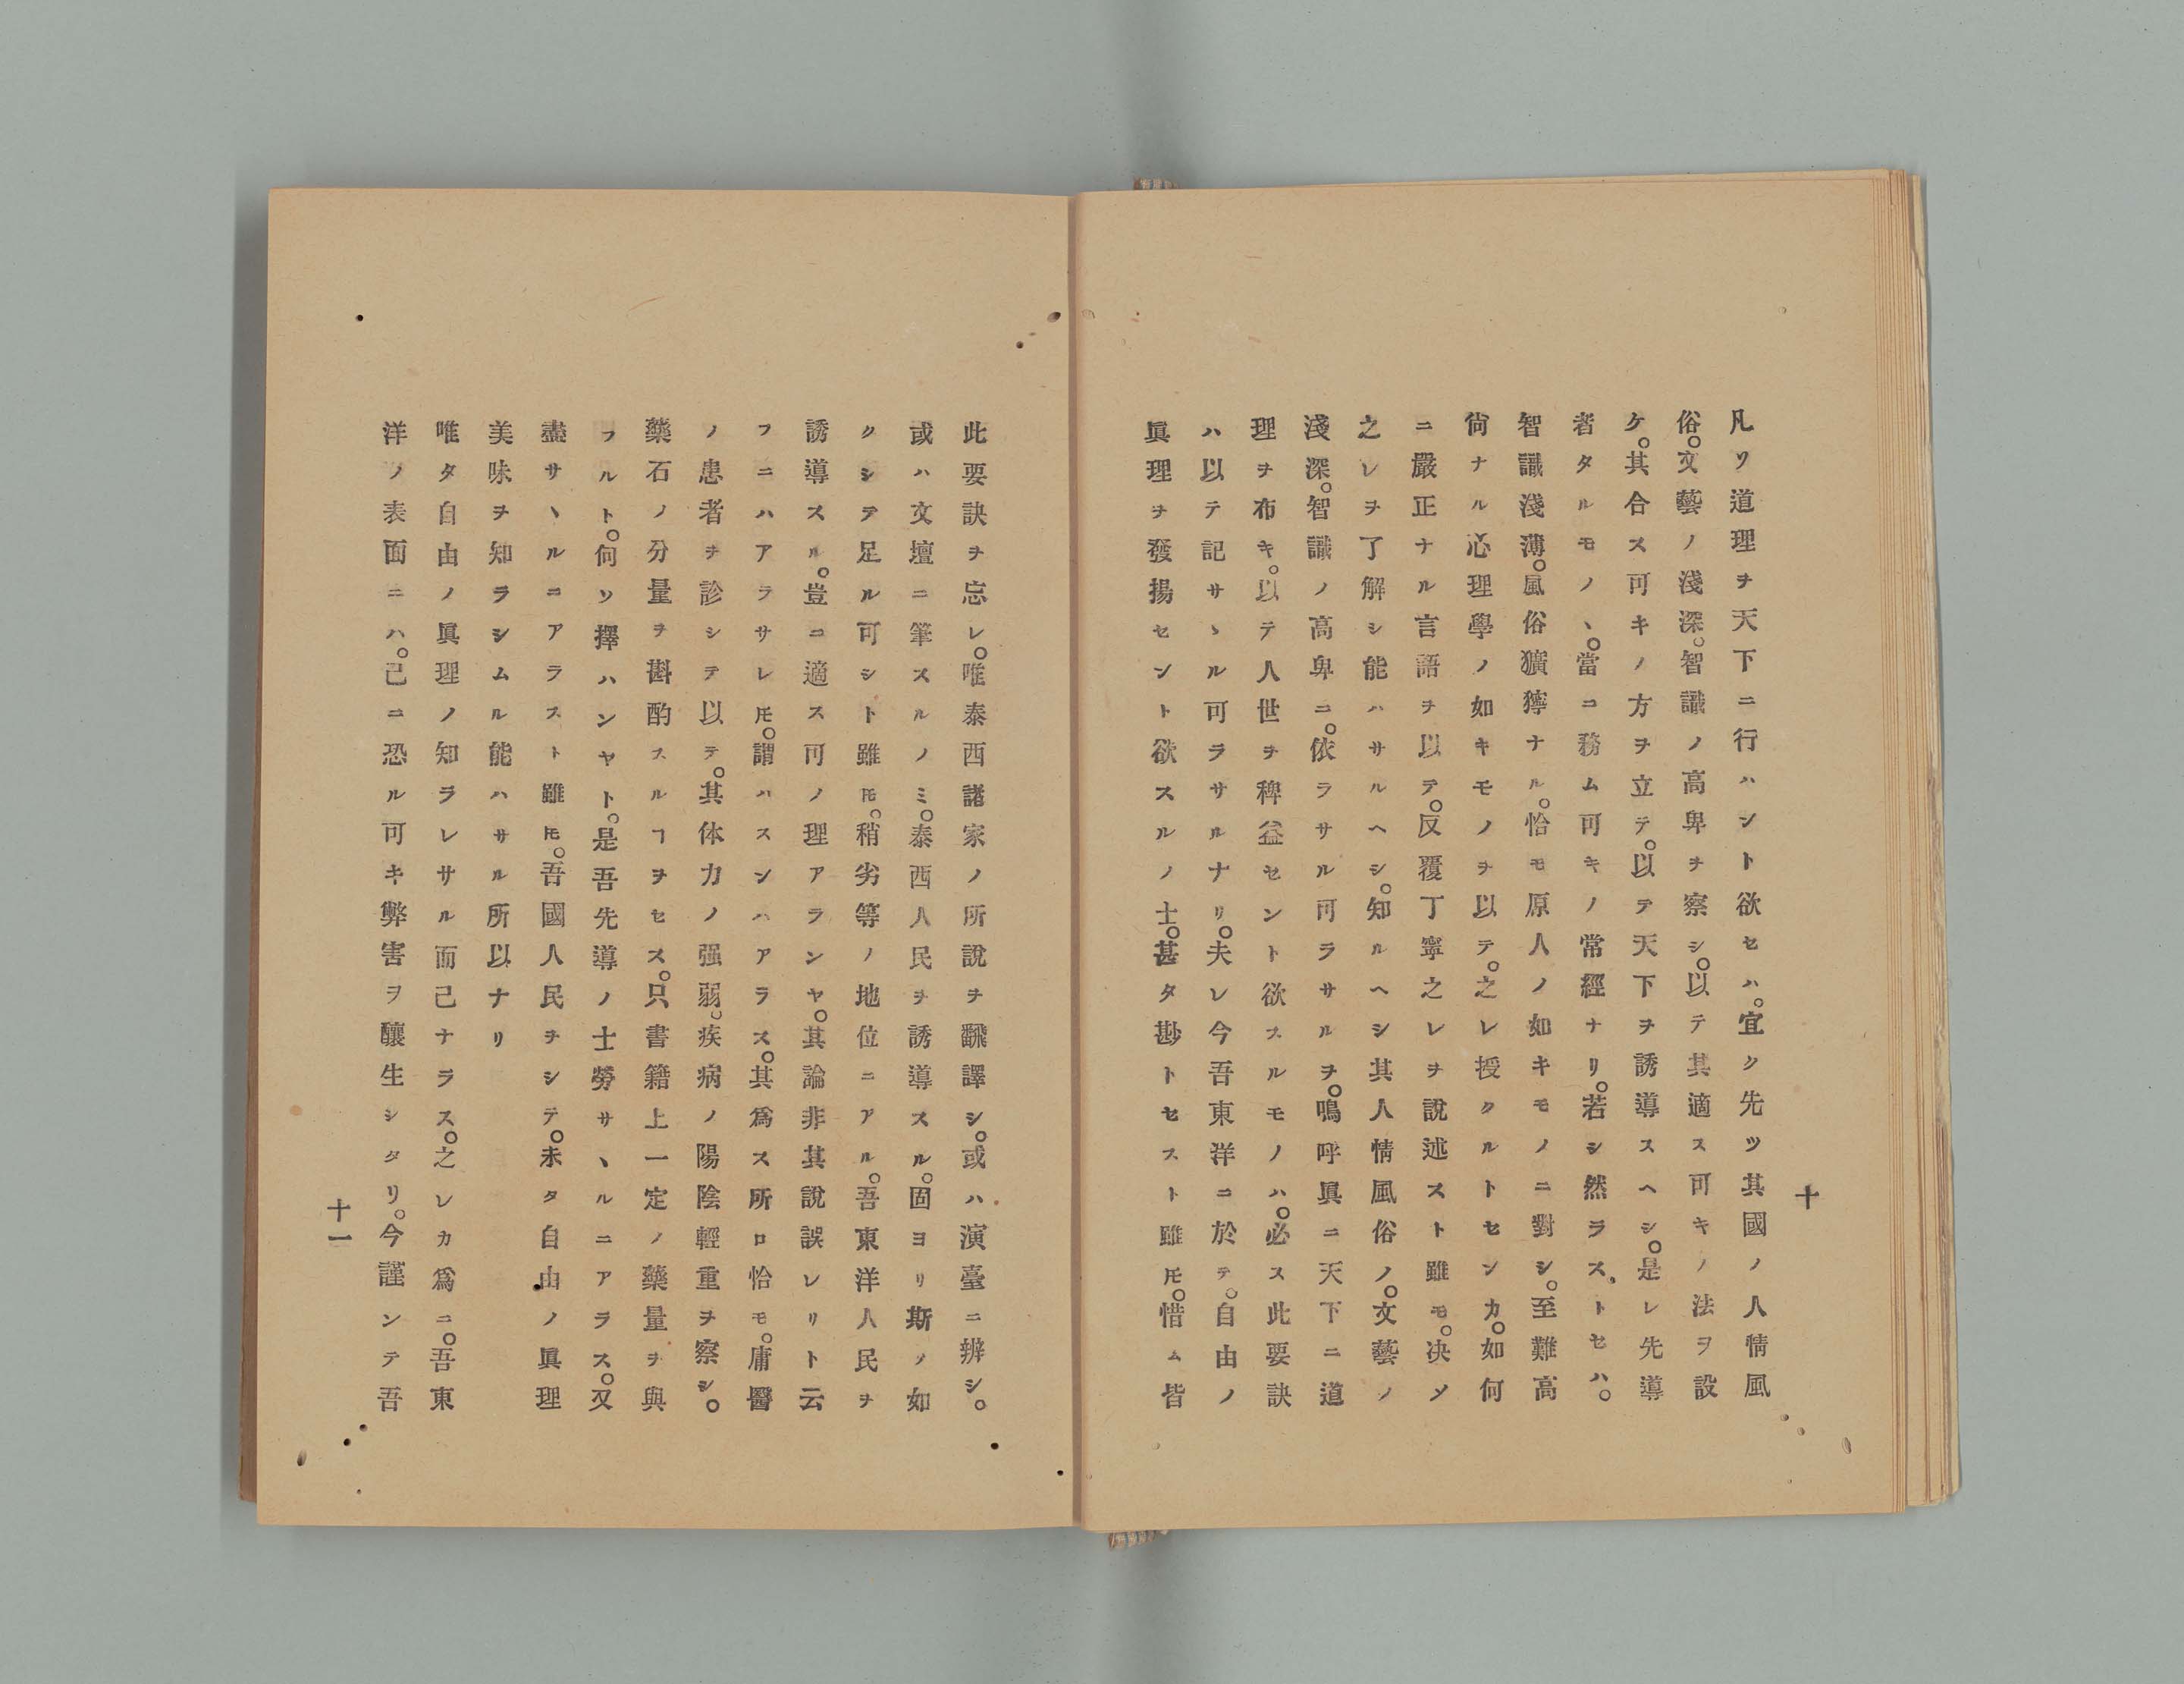 十
凡ソ道理ヲ天下ニ行ハント欲セハ。宜ク先ツ其國ノ人情風
俗。文藝ノ淺深。智識ノ高卑ヲ察シ。以テ其適ス可キノ法ヲ設
ケ。其合ス可キノ方ヲ立テ。以テ天下ヲ誘導スヘシ。是レ先導
者タルモノヽ。當ニ務ム可キノ常經ナリ。若シ然ラス、トセハ。
智識淺薄。風俗獷獰ナル。恰モ原人ノ如キモノニ對シ。至難高
尙ナル心理學ノ如キモノヲ以テ。之レ授クルトセンカ。如何
ニ嚴正ナル言語ヲ以テ。反覆丁寧之レヲ說述スト雖モ。决メ
之レヲ了解シ能ハサルヘシ。知ルヘシ其人情風俗ノ。文藝ノ
淺深。智識ノ高卑ニ。依ラサル可ラサルヲ。嗚呼眞ニ天下ニ道
理ヲ布キ。以テ人世ヲ稗益セント欲スルモノハ。必ス此要訣
ハ以テ記サヽル可ラサルナリ。夫レ今吾東洋ニ於テ。自由ノ
眞理ヲ發揚セント欲スルノ士。甚タ尠トセスト雖𪜈。惜ム皆
此要訣ヲ忘レ。唯泰西諸家ノ所說ヲ飜譯シ。或ハ演臺ニ辨シ。
或ハ文壇ニ筆スルノミ。泰西人民ヲ誘導スル。固ヨリ斯ノ如
クシテ足ル可シト雖𪜈。稍劣等ノ地位ニアル。吾東洋人民ヲ
誘導スル。豈ニ適ス可ノ理アランヤ。其論非其說誤レリト云
フニハアラサレ𪜈。謂ハスンハアラス。其爲ス所ロ恰モ。庸醫
ノ患者ヲ診シテ以テ。其体力ノ强弱。疾病ノ陽陰輕重ヲ察シ。
藥石ノ分量ヲ斟酌スルヿヲセス。只書籍上一定ノ藥量ヲ與
フルト。何ソ擇ハンヤト。是吾先導ノ士勞サヽルニアラス。又
盡サヽルニアラスト雖𪜈。吾國人民ヲシテ。未タ自由ノ眞理
美味ヲ知ラシムル能ハサル所以ナリ
唯タ自由ノ眞理ノ知ラレサル而己ナラス。之レカ爲ニ。吾東
洋ノ表面ニハ。己ニ恐ル可キ弊害ヲ釀生シタリ。今謹ンテ吾
十一